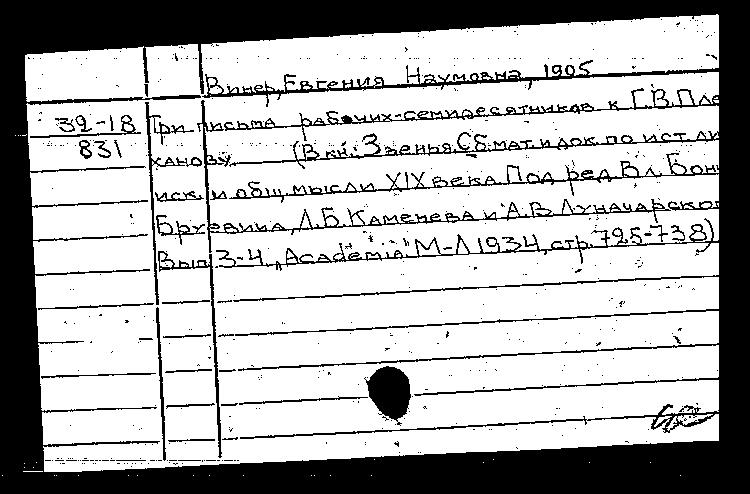 Винер, Евгения Наумовна, 1905
39-18 Три письма рабочих-семидесятников к Г.В. Пле
831 ханову. (В кн.: Звенья. Сб. мат. и док. по ист. ли
иск. и общ. мысли XIX века. Под ред. Вл. Бон
Бруевича, Л.Б. Каменева и А.В. Луначарско
Вып. 3-4. „Academia" М-Л 1934, стр. 725-738)